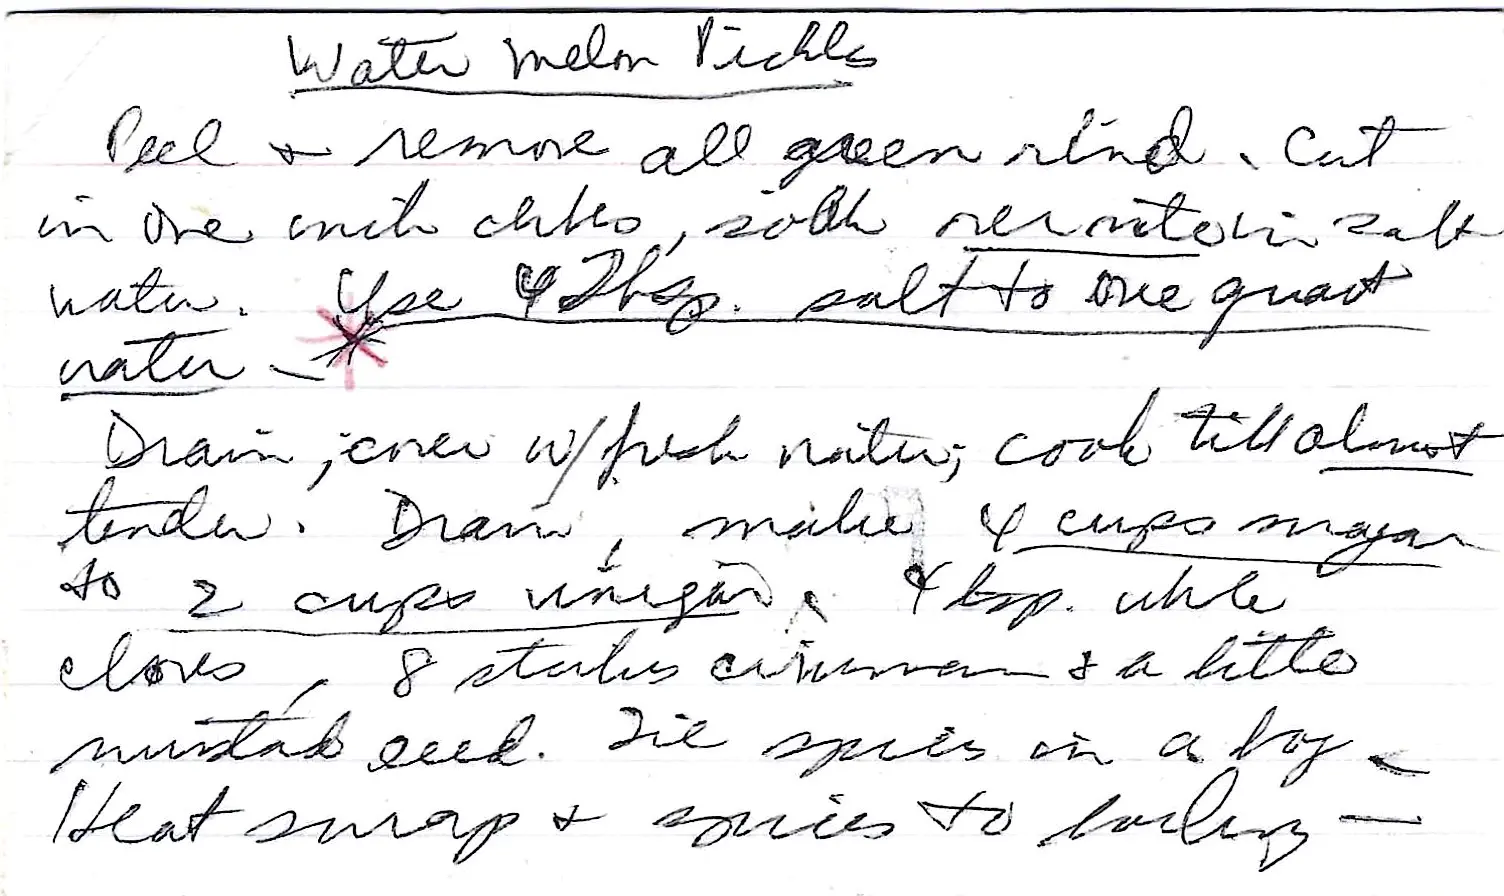 Water Melon Pickles
Peel & remove all green rind. Cut
in one inch cubes, soak overnite in salt
water. Use 4 Tbsp. salt to one quart
water -*
Drain; cover w/fresh water; cook till almost
tender. Drain, make 4 cups sugar
to 2 cups vinegar, 4 tsp. whole
cloves, 8 sticks cinnamon & a little
mustard seed. Tie spices in a bag -
Heat syrup & spices to boiling -